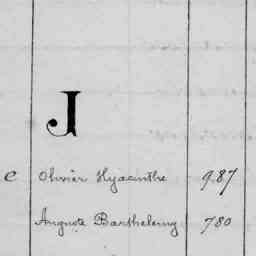 J
c Olivier Hyacinthe 987
Auguste Barthelemy 780